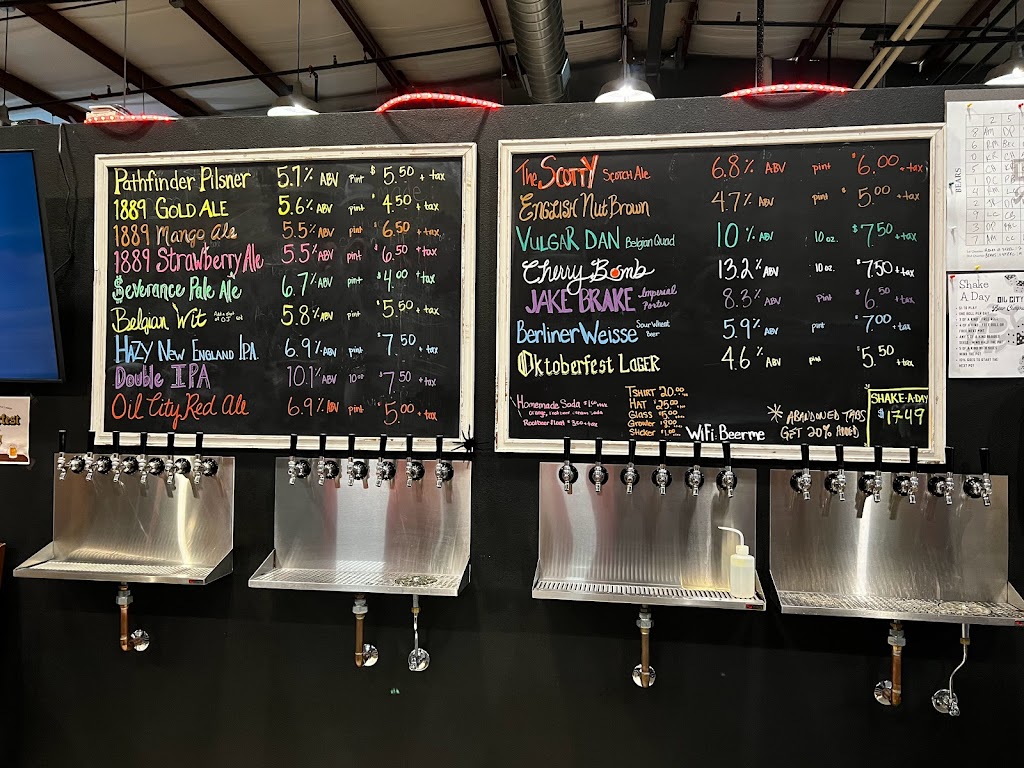 Pathfinder Pilsner 5.1% ABV pint $5.50 + tax
1889 GOLD ALE 5.6% ABV pint $4.50 + tax
1889 Mango Ale 5.5% ABV pint $6.50 + tax
1889 Strawberry Ale 5.5% ABV pint $6.50 + tax
Severance Pale Ale 6.7% ABV pint $4.00 + tax
Belgian Wit 5.8% ABV pint $5.50 + tax
HAZY NEW ENGLAND IPA 6.9% ABV pint $7.50 + tax
Double IPA 10.1% ABV 10oz $7.50 + tax
Oil City Red Ale 6.9% ABV pint $5.00 + tax
The SCOTTY SCOTCH Ale 6.8% ABV pint $6.00 + tax
ENGLISH Nut Brown 4.7% ABV pint $5.00 + tax
VULGAR DAN Belgian Quad 10% ABV 10 oz. $7.50 + tax
Cherry Bomb 13.2% ABV 10 oz. $7.50 + tax
JAKE BRAKE Imperial Porter 8.3% ABV Pint $6.50 + tax
Berliner Weisse Sour Wheat Beer 5.9% ABV pint $7.00 + tax
Oktoberfest LAGER 4.6% ABV pint $5.50 + tax
Homemade Soda
Rootbeer Float
TSHIRT 20.00
HAT $25.00
Glass $5.00
Growler
Sticker
WiFi: Beerme
* ABANDONED TABS GET 20% ADDED
SHAKE-A-DAY
$1749
BEARS
Shake
A Day
OIL CITY